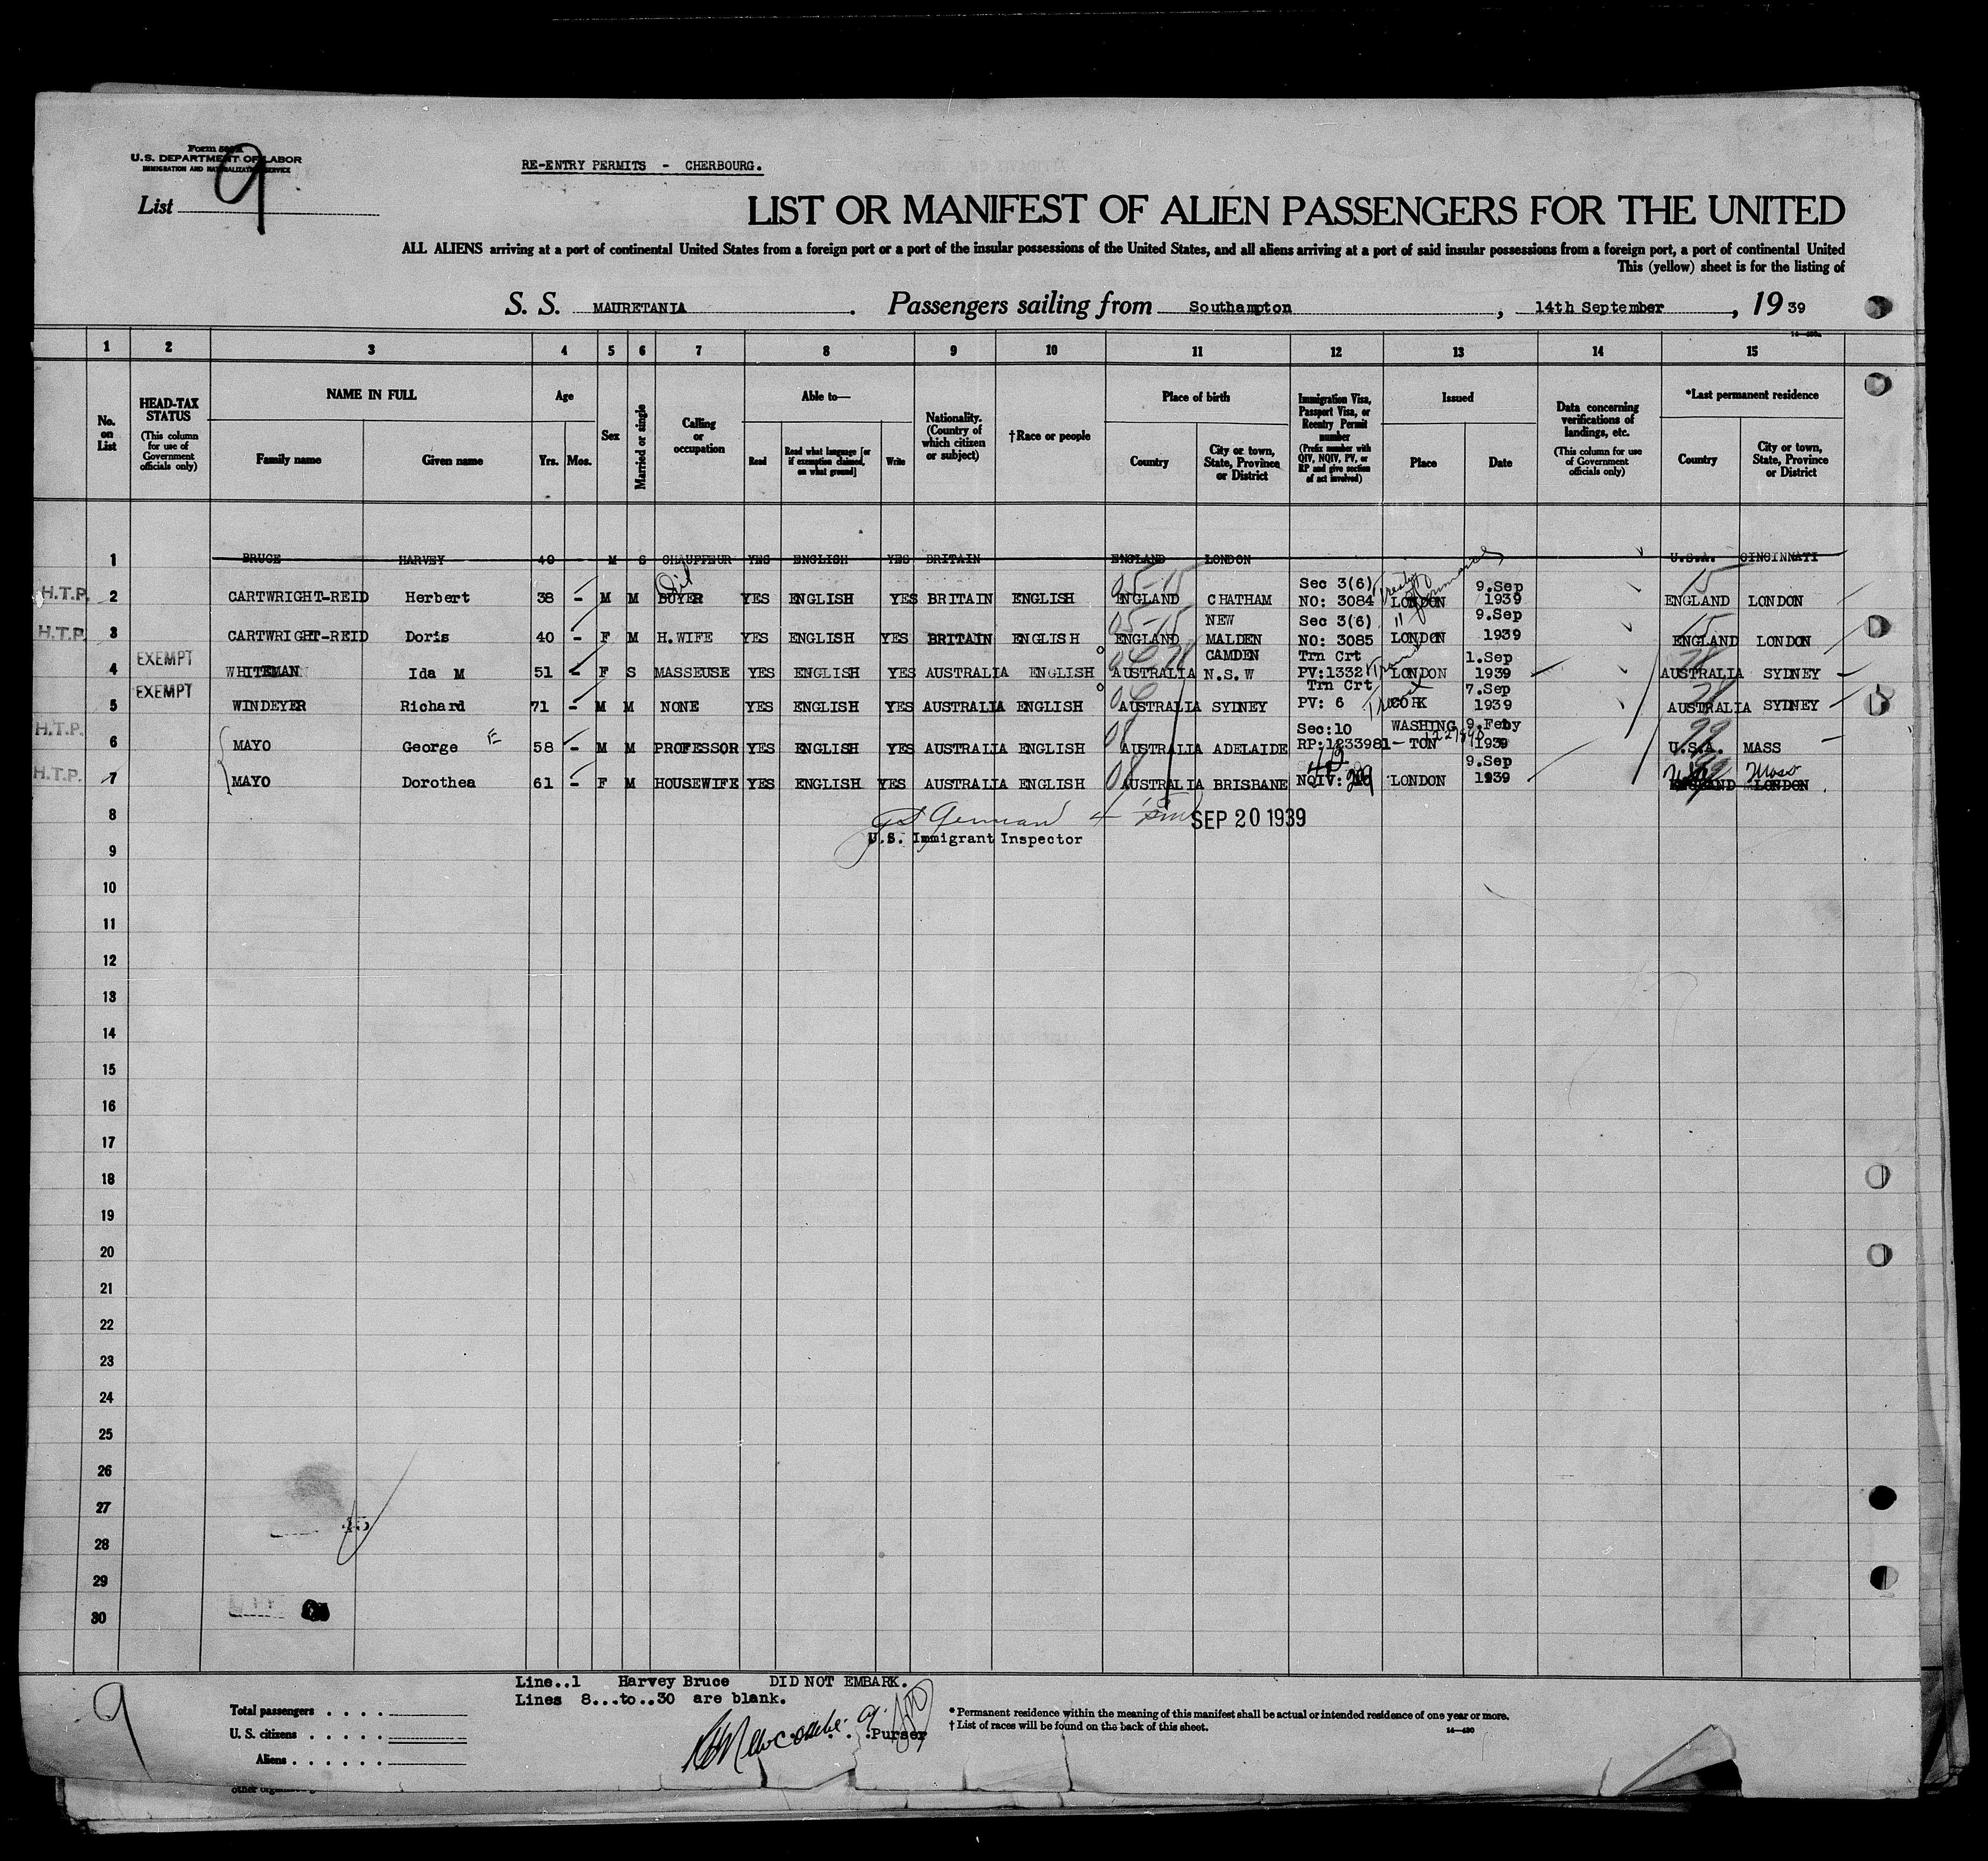 Form 500A
U.S. DEPARTMENT OF LABOR
IMMIGRATION AND NATURALIZATION SERVICE
List 9
RE-ENTRY PERMITS - CHERBOURG.
LIST OR MANIFEST OF ALIEN PASSENGERS FOR THE UNITED
ALL ALIENS arriving at a port of continental United States from a foreign port or a port of the insular possessions of the United States, and all aliens arriving at a port of said insular possessions from a foreign port, a port of continental United
This (yellow) sheet is for the listing of
S. S. MAURETANIA . Passengers sailing from Southampton , 14th September , 19 39
1 2 3 4 5 6 7 8 9 10 11 12 13 14 15
No. on List
HEAD-TAX STATUS (This column for use of Government officials only)
NAME IN FULL Family name Given name
Age Yrs. Mos.
Sex
Married or single
Calling or occupation
Able to— Read Read what language [or if exemption claimed, on what ground] Write
Nationality. (Country of which citizen or subject)
†Race or people
Place of birth Country City or town, State, Province or District
Immigration Visa, Passport Visa, or Reentry Permit number (Prefix number with QIV, NQIV, PV, or RP and give section of act involved)
Issued Place Date
Data concerning verifications of landings, etc. (This column for use of Government officials only)
*Last permanent residence Country City or town, State, Province or District
1 BRUCE HARVEY 40 M S CHAUFFEUR YES ENGLISH YES BRITAIN ENGLAND LONDON U.S.A. CINCINNATI
H.T.P. 2 CARTWRIGHT-REID Herbert 38 - M M Oil BUYER YES ENGLISH YES BRITAIN ENGLISH 05-15 ENGLAND CHATHAM Sec 3(6) NO: 3084 Treaty Commerce LONDON 9.Sep 1939 15 ENGLAND LONDON
H.T.P. 3 CARTWRIGHT-REID Doris 40 - F M H.WIFE YES ENGLISH YES BRITAIN ENGLISH 05-15 ENGLAND NEW MALDEN Sec 3(6) NO: 3085 " LONDON 9.Sep 1939 15 ENGLAND LONDON
EXEMPT 4 WHITEMAN Ida M 51 - F S MASSEUSE YES ENGLISH YES AUSTRALIA ENGLISH AUSTRALIA CAMDEN N.S.W Trn Crt PV:1332 LONDON 1.Sep 1939 AUSTRALIA SYDNEY
EXEMPT 5 WINDEYER Richard 71 - M M NONE YES ENGLISH YES AUSTRALIA ENGLISH AUSTRALIA SYDNEY Trn Crt PV: 6 CORK 7.Sep 1939 AUSTRALIA SYDNEY
H.T.P. 6 MAYO George E 58 - M M PROFESSOR YES ENGLISH YES AUSTRALIA ENGLISH 08 AUSTRALIA ADELAIDE Sec:10 RP:1233981 WASHING- TON 9.Feby 1939 99 U.S.A. MASS
H.T.P. 7 MAYO Dorothea 61 - F M HOUSEWIFE YES ENGLISH YES AUSTRALIA ENGLISH 08 AUSTRALIA BRISBANE NQIV: LONDON 9.Sep 1939 99 Mass ENGLAND LONDON
8
U.S. Immigrant Inspector SEP 20 1939
9
10
11
12
13
14
15
16
17
18
19
20
21
22
23
24
25
26
27
28
29
30
Line..1 Harvey Bruce DID NOT EMBARK.
Lines 8...to..30 are blank.
9
Total passengers
U. S. citizens
Aliens
Newcombe. Purser
* Permanent residence within the meaning of this manifest shall be actual or intended residence of one year or more.
† List of races will be found on the back of this sheet.
14—430